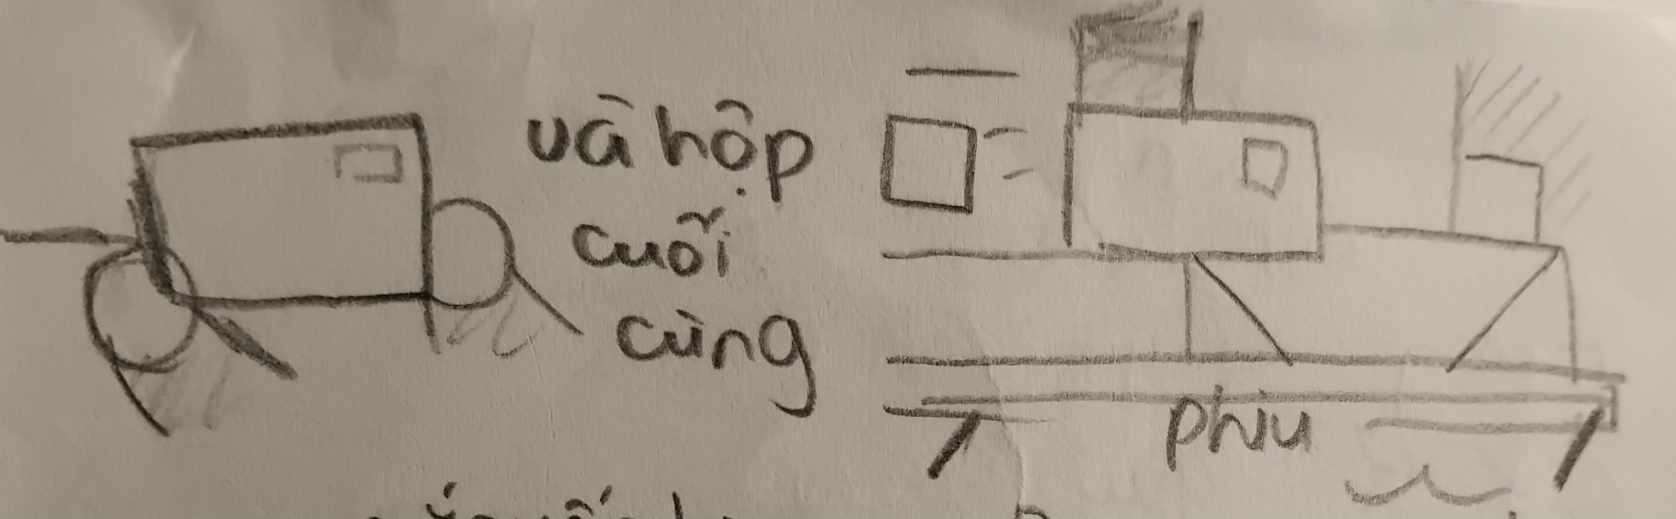 và hộp
cuối
cùng
phiu